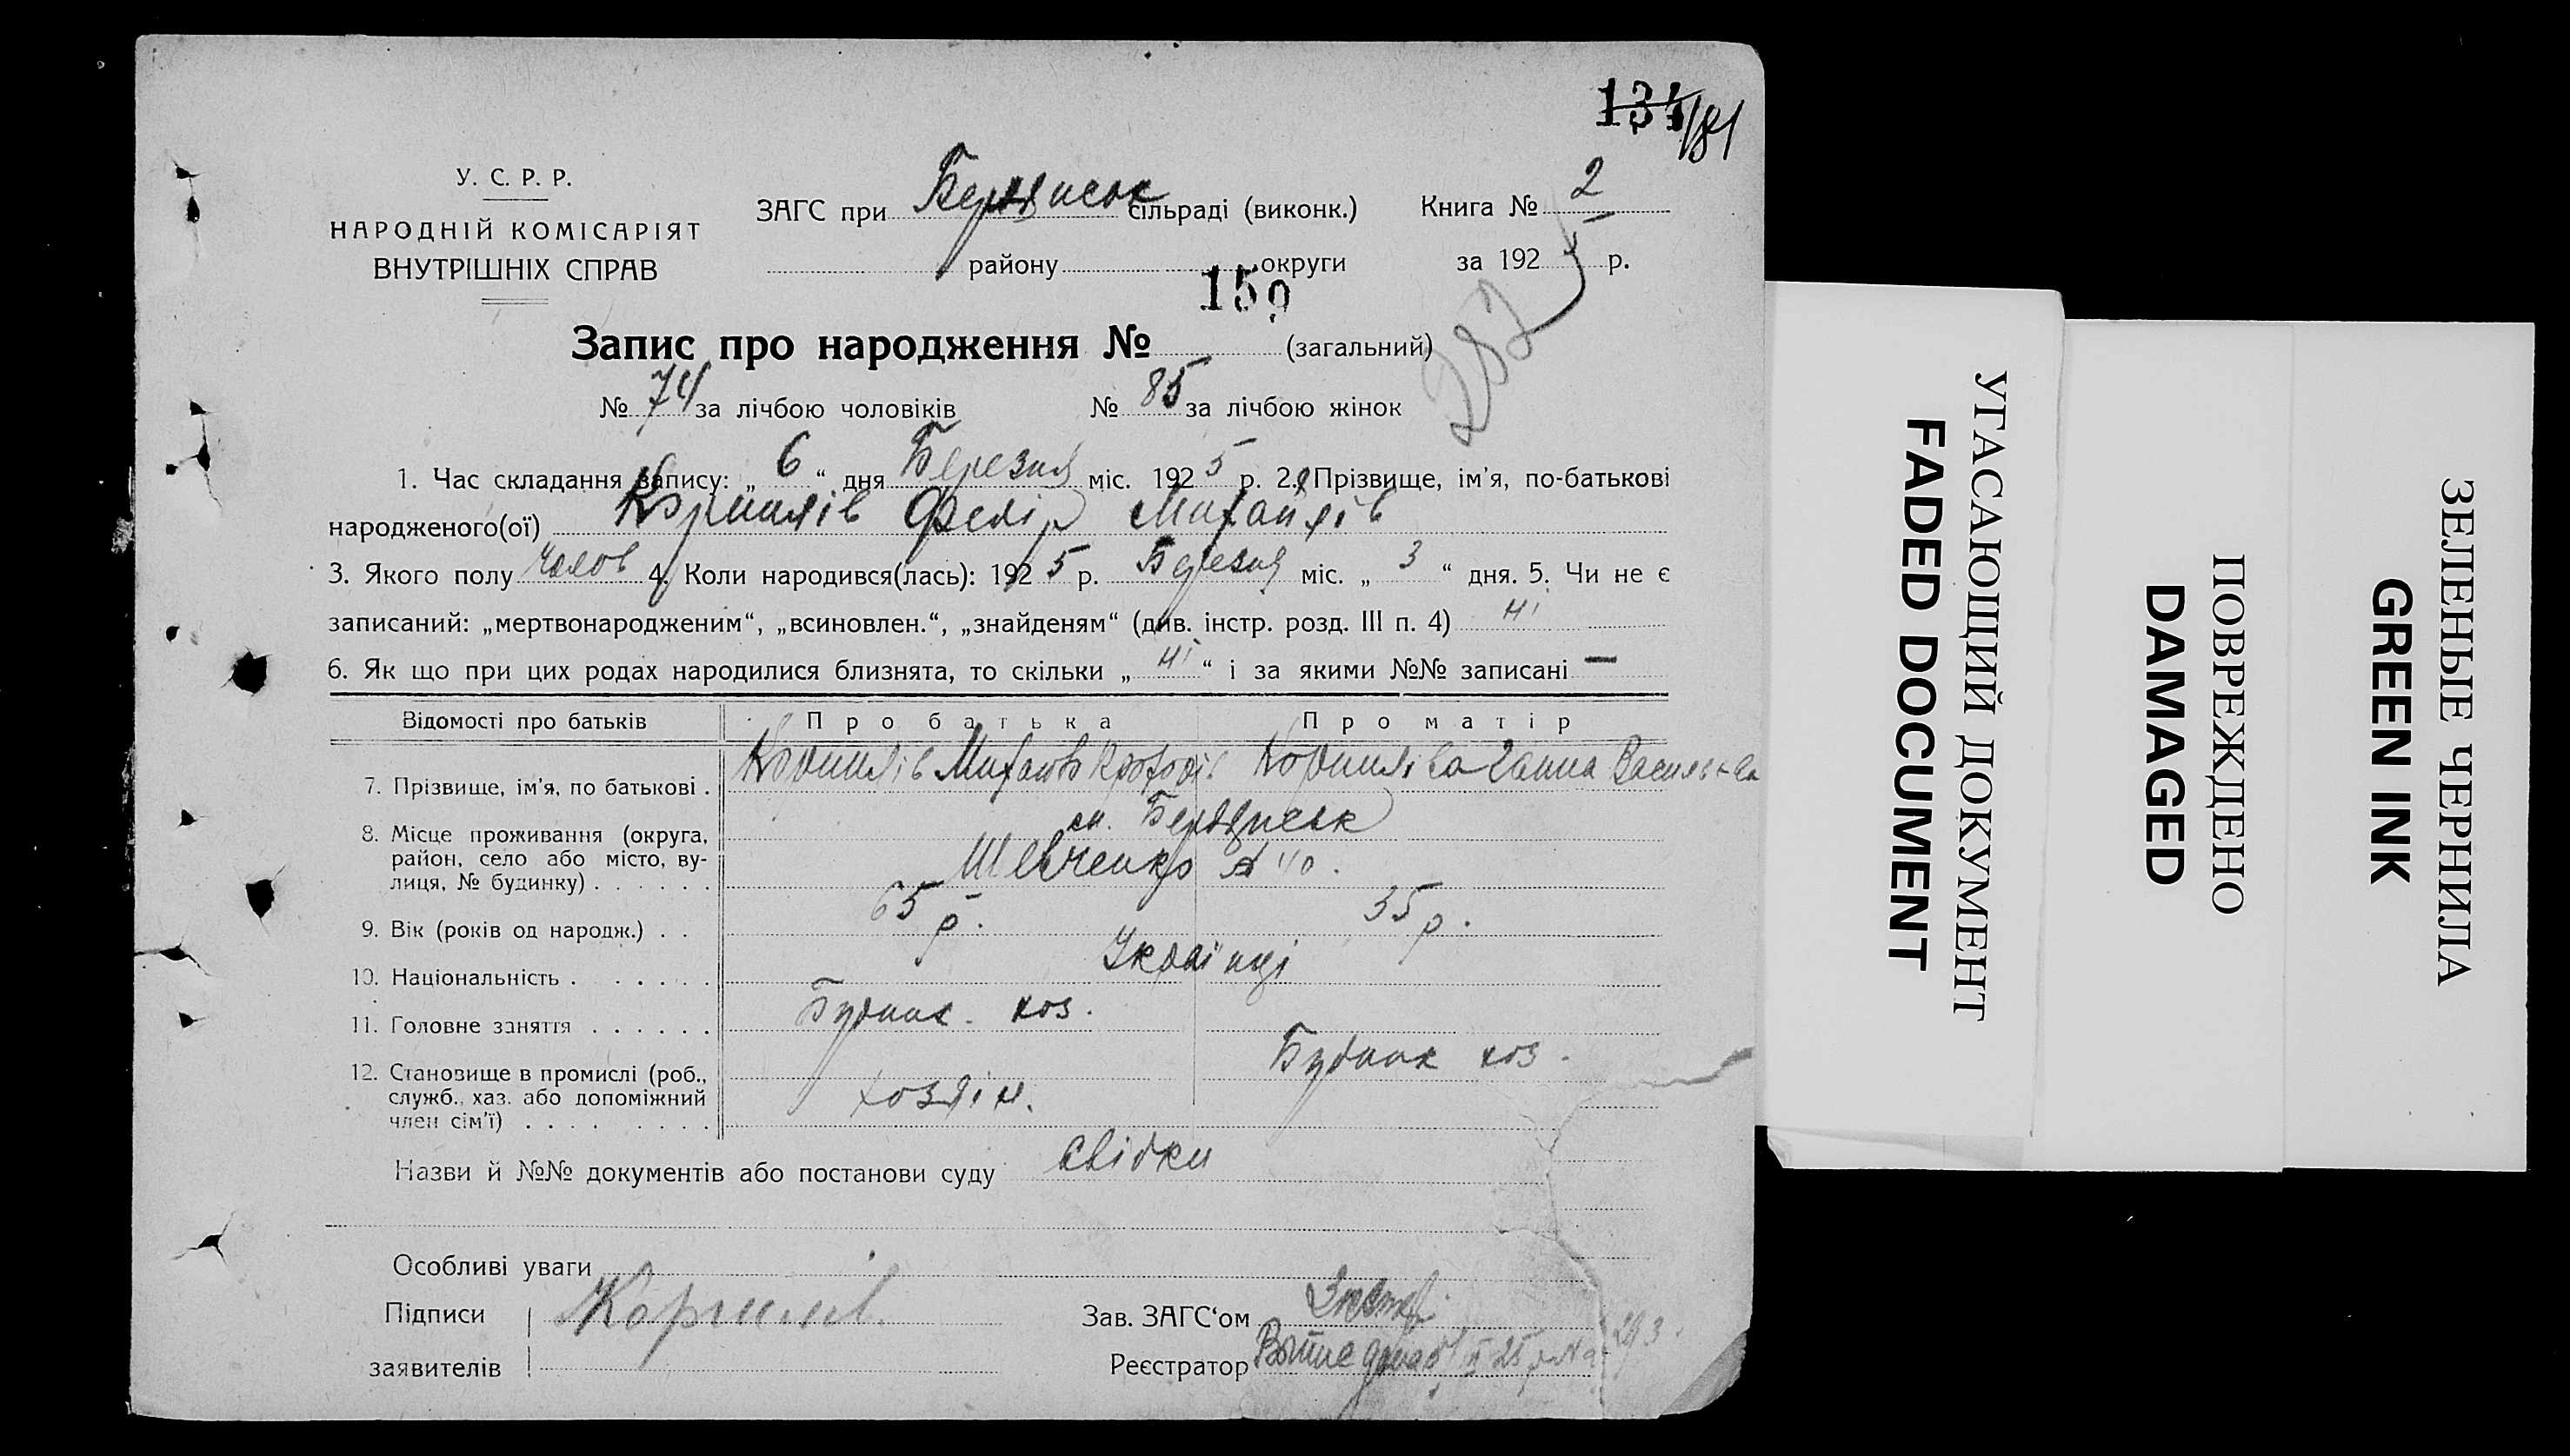 134
181
У. С. Р. Р.
НАРОДНІЙ КОМІСАРІЯТ
ВНУТРІШНІХ СПРАВ
ЗАГС при Бердянськ сільраді (виконк.) Книга № 2
району округи за 192 5 р.
150
282
Запис про народження № (загальний)
№ 74 за лічбою чоловіків № 85 за лічбою жінок
1. Час складання запису: „ 6 “ дня Березня міс. 192 5 р. 2. Прізвище, ім'я, по-батькові
народженого(ої) Корнилів Федір Михайлів
3. Якого полу чолов 4. Коли народився(лась): 192 5 р. Березня міс. „ 3 “ дня. 5. Чи не є
записаний: „мертвонародженим“, „всиновлен.“, „знайденям“ (див. інстр. розд. III п. 4) ні
6. Як що при цих родах народилися близнята, то скільки „ ні “ і за якими №№ записані —
Відомості про батьків Про батька Про матір
7. Прізвище, ім'я, по батькові . Корнилів Михайло Корнилівa Ганна Василівна
8. Місце проживання (округа, район, село або місто, вулиця, № будинку) . . . . . . м. Бердянськ
Шевченко № 40.
9. Вік (років од народж.) . . 65 р. 35 р.
10. Національність . . . . . . Українці
11. Головне заняття . . . . . . Будинк. хоз.
Будинк хоз.
12. Становище в промислі (роб., служб., хаз. або допоміжний член сім'ї) . . . . . . . . хозяїн.
Назви й №№ документів або постанови суду свідки
Особливі уваги
Підписи Корнилов
заявителів
Зав. ЗАГС‘ом
Реєстратор
УГАСАЮЩИЙ ДОКУМЕНТ
FADED DOCUMENT
ПОВРЕЖДЕНО
DAMAGED
ЗЕЛЕНЫЕ ЧЕРНИЛА
GREEN INK